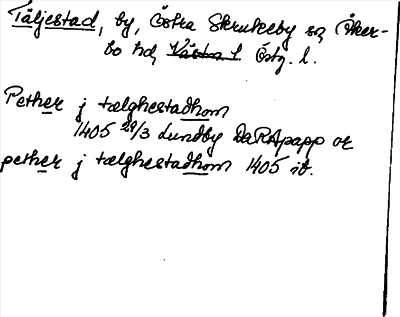 Täljestad, by, Östra Skrukeby sn Åker-
bo hd, Västm l Östg. l.
Pether j tælghestadhom
1405 29/3 Lundby DaRApapp or
pether j tælghestadhom 1405 ib.